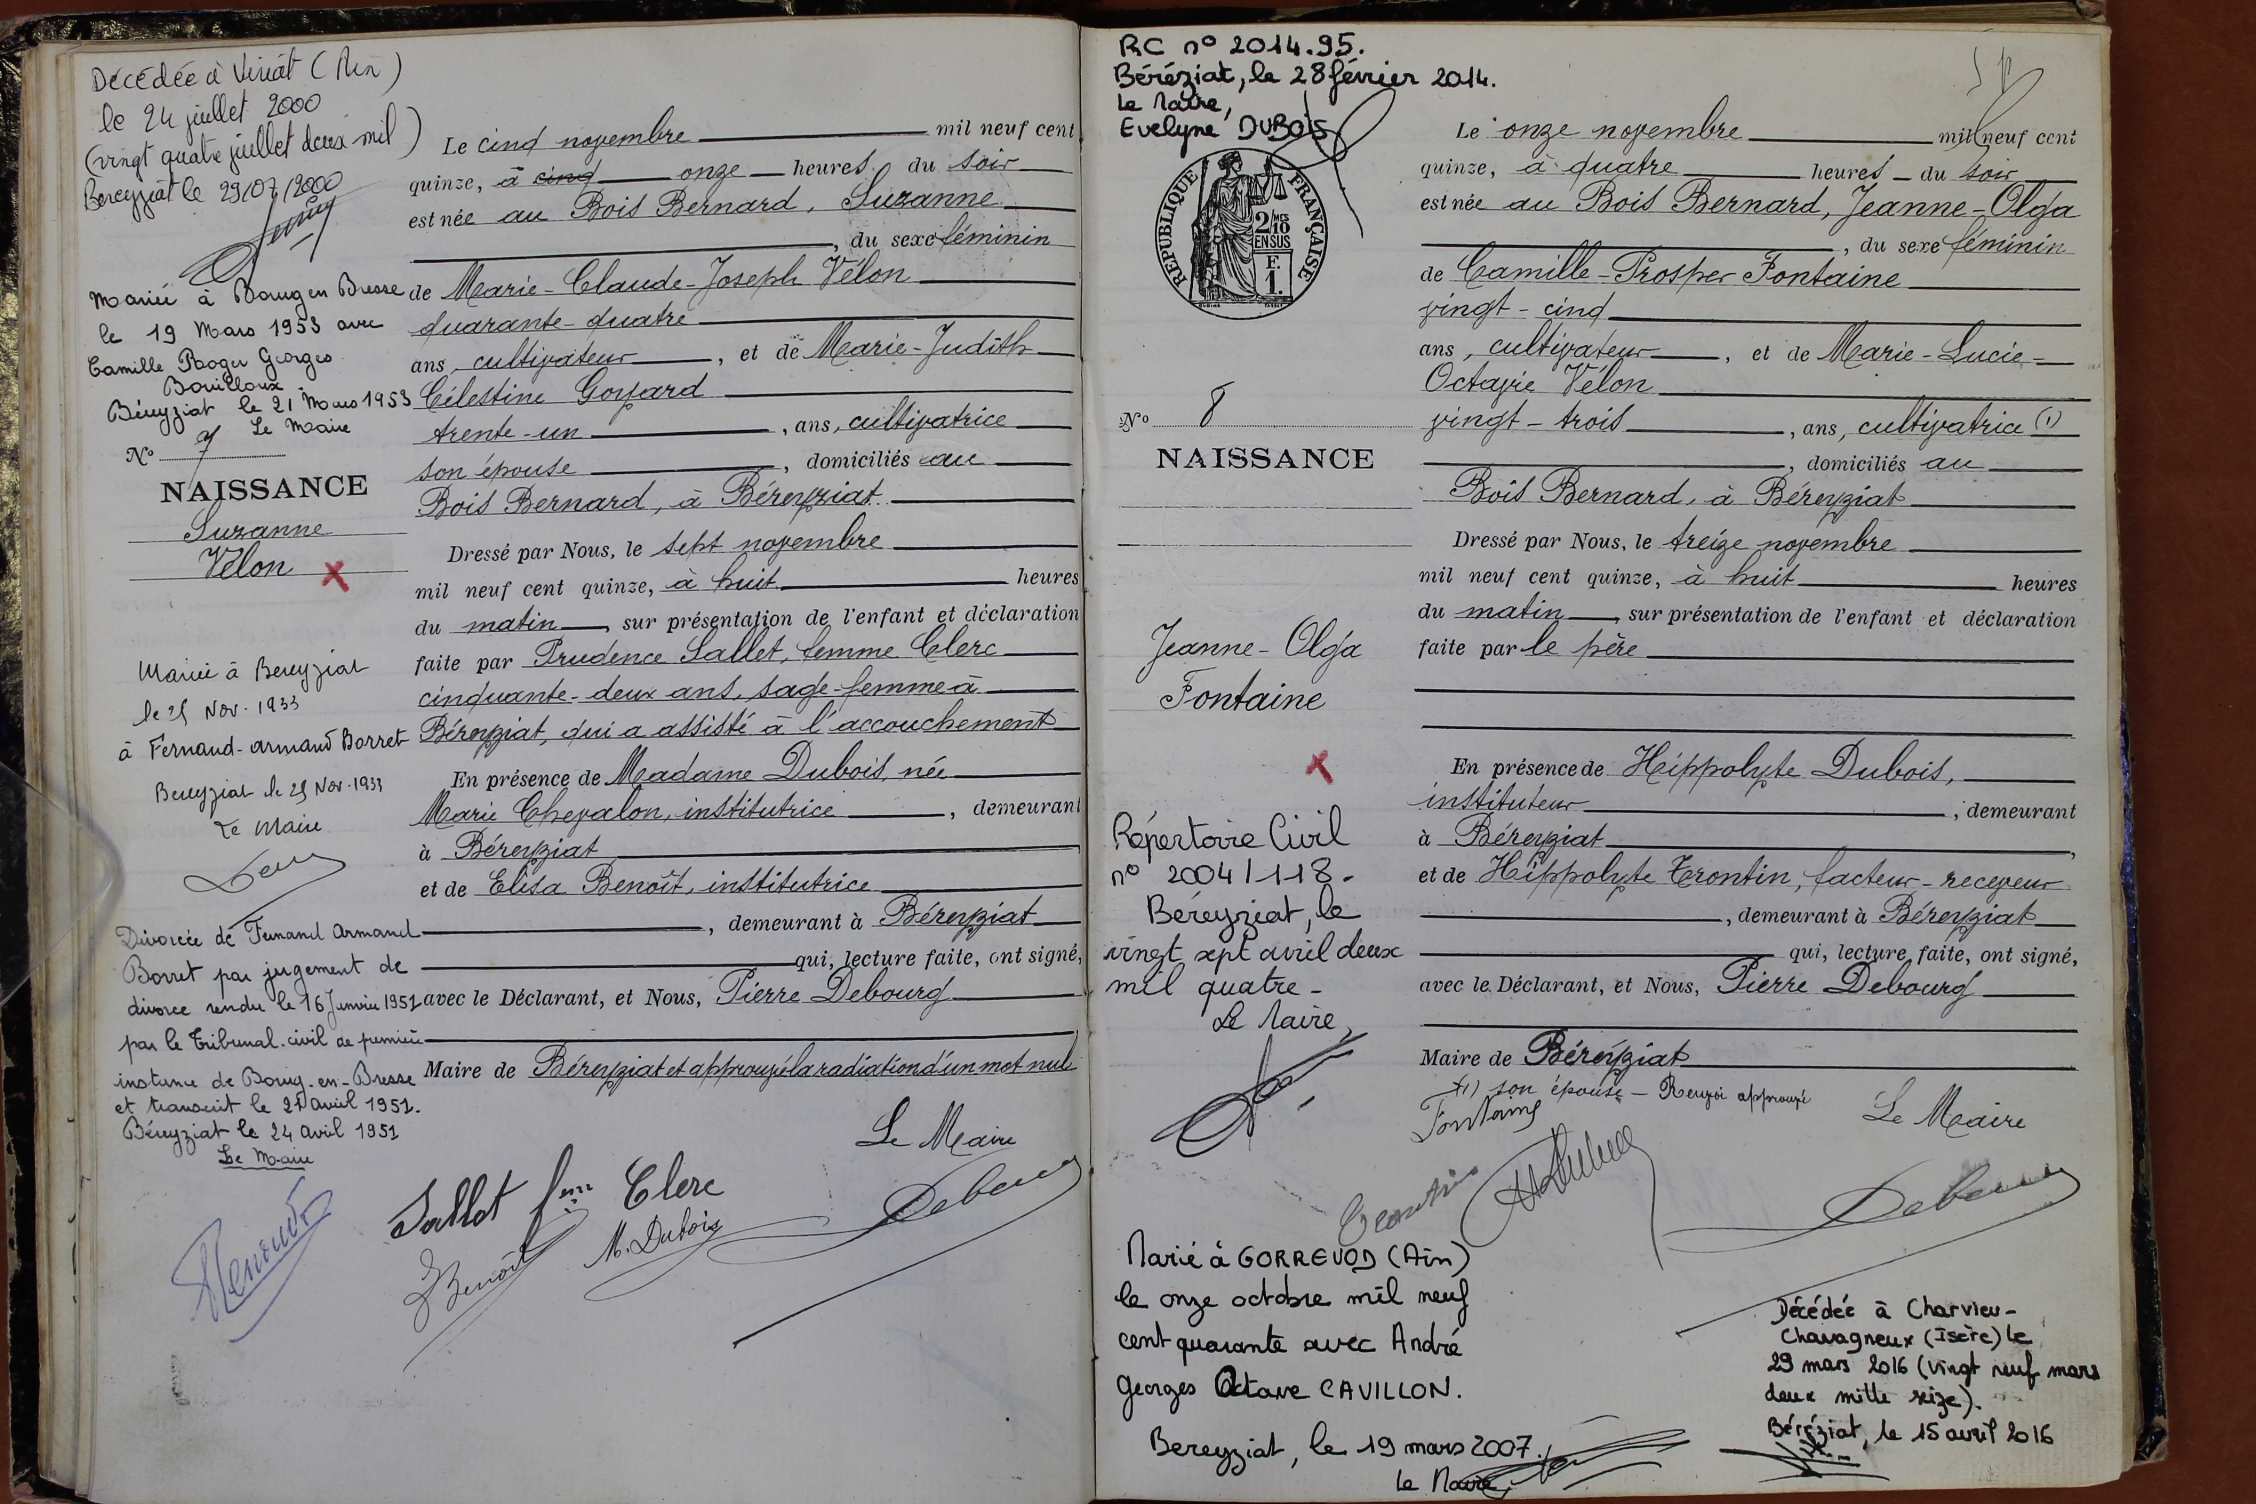 Décédée à Viriat (Ain)
le 24 juillet 2000
(vingt quatre juillet deux mil)
Bereyziat le 29/07/2000
Mariée à Bourg en Bresse
le 19 Mars 1953 avec
Camille Roger Georges
Bouilloux
Béreyziat le 21 Mars 1953
Le Maire
N° 7
NAISSANCE
Suzanne
Vélon
Mariée à Bereyziat
le 25 Nov. 1933
à Fernand-armand Borret
Bereyziat le 25 Nov. 1933
Le Maire
Divorcée de Fernand Armand
Borret par jugement de
divorce rendu le 16 Janvier 1951
par le Tribunal civil de première
instance de Bourg-en-Bresse
et transcrit le 21 avril 1951.
Béreyziat le 24 avril 1951
Le Maire
Le cinq novembre mil neuf cent
quinze, à cinq onze heures du soir
est née au Bois Bernard, Suzanne
, du sexe féminin
de Marie-Claude-Joseph Vélon
quarante-quatre
ans, cultivateur, et de Marie-Judith
Célestine Goyard
trente-un, ans, cultivatrice
son épouse, domiciliés au
Bois Bernard, à Béreyziat
Dressé par Nous, le sept novembre
mil neuf cent quinze, à huit heures
du matin, sur présentation de l'enfant et déclaration
faite par Prudence Sallet, femme Clerc
cinquante-deux ans, sage-femme à
Béreyziat, qui a assisté à l'accouchement
En présence de Madame Dubois, née
Marie Chevalon, institutrice, demeurant
à Béreyziat
et de Elisa Benoît, institutrice
, demeurant à Béreyziat
qui, lecture faite, ont signé,
avec le Déclarant, et Nous, Pierre Debourg
Maire de Béreyziat et approuvé la radiation d'un mot nul
Le Maire
Sallet fem Clerc
Benoît
M. Dubois
Debourg
RC n° 2014.95.
Béréziat, le 28 février 2014.
Le Maire,
Evelyne DUBOIS
RÉPUBLIQUE FRANÇAISE
2/10 MES
EN SUS
F.
1.
N° 8
NAISSANCE
Jeanne-Olga
Fontaine
Répertoire Civil
n° 2004/118.
Béreyziat, le
vingt sept avril deux
mil quatre-
Le Maire,
Le onze novembre mil neuf cent
quinze, à quatre heures du soir
est née au Bois Bernard, Jeanne-Olga
, du sexe féminin
de Camille-Prosper Fontaine
vingt-cinq
ans, cultivateur, et de Marie-Lucie-
Octavie Vélon
vingt-trois, ans, cultivatrice (1)
, domiciliés au
Bois Bernard, à Béreyziat
Dressé par Nous, le treize novembre
mil neuf cent quinze, à huit heures
du matin, sur présentation de l'enfant et déclaration
faite par le père
En présence de Hippolyte Dubois,
instituteur, demeurant
à Béreyziat,
et de Hippolyte Trontin, facteur-receveur
, demeurant à Béreyziat
qui, lecture faite, ont signé,
avec le Déclarant, et Nous, Pierre Debourg
Maire de Béreyziat
(1) son épouse - Renvoi approuvé
Fontaine
Le Maire
Trontin
Debourg
Marié à GORREVOD (Ain)
le onze octobre mil neuf
cent quarante avec André
Georges Octave CAVILLON.
Bereyziat, le 19 mars 2007.
Le Maire,
Décédée à Charvieu-
Chavagneux (Isère) le
29 mars 2016 (vingt neuf mars
deux mille seize).
Béréziat, le 15 avril 2016